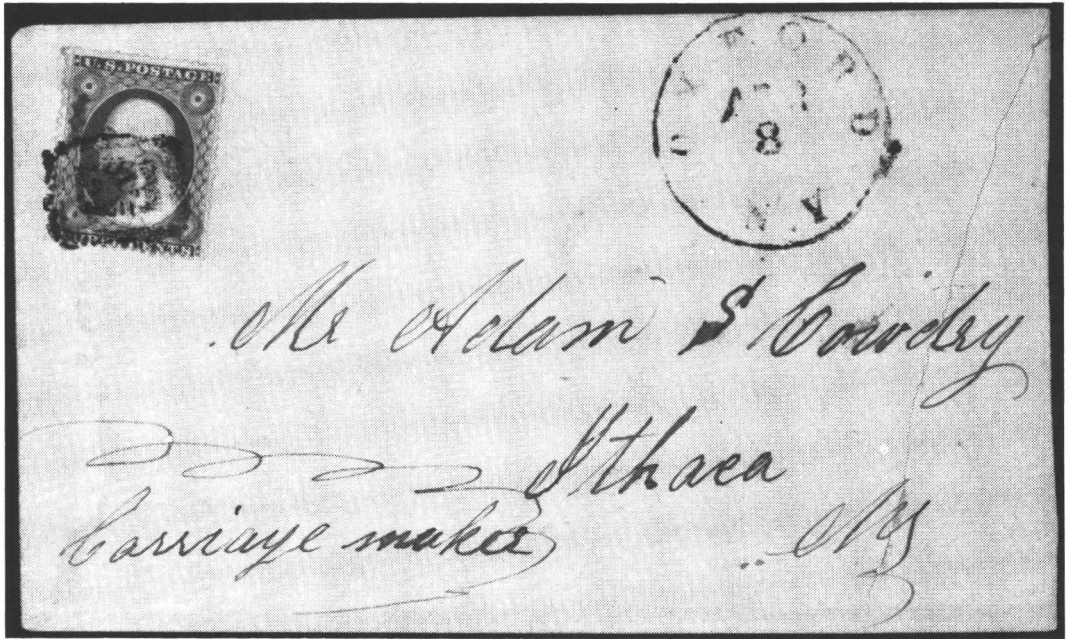 U.S. POSTAGE
OXFORD
AP
8
N.Y.
Mr Adam S Cowdry
Ithaca
Carriage maker
NY